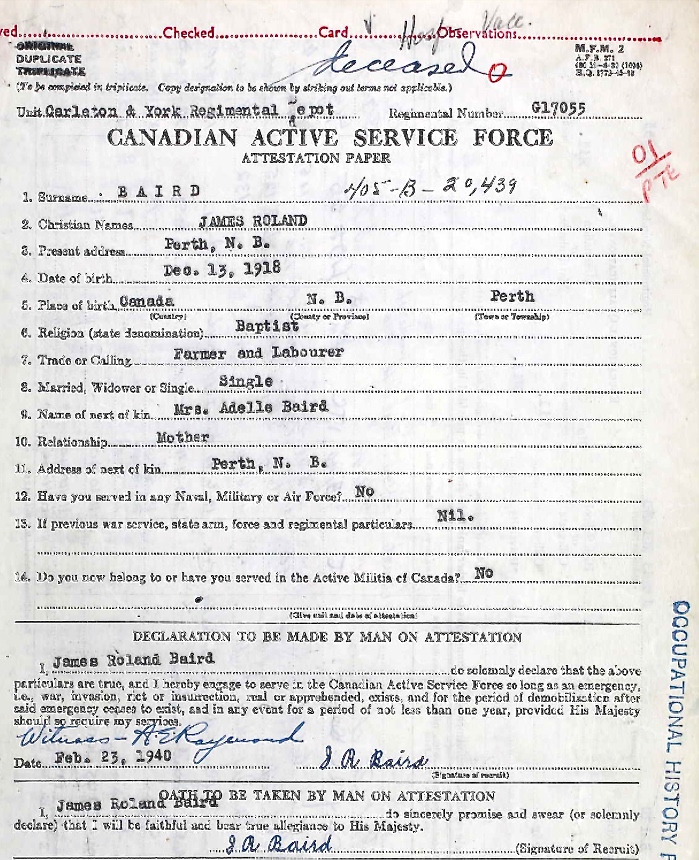 Checked Card Hosp Observations
ORIGINAL
DUPLICATE
TRIPLICATE
deceased
M.F.M. 2
A.F.B. 271
(To be completed in triplicate. Copy designation to be shown by striking out terms not applicable.)
Unit Carleton & York Regimental epot Regimental Number G17055
CANADIAN ACTIVE SERVICE FORCE
ATTESTATION PAPER
01
PTE
1. Surname BAIRD 405-B-20,439
2. Christian Names JAMES ROLAND
3. Present address Perth, N. B.
4. Date of birth Dec. 13, 1918
5. Place of birth Canada N. B. Perth
(Country) (County or Province) (Town or Township)
6. Religion (state denomination) Baptist
7. Trade or Calling Farmer and Labourer
8. Married, Widower or Single Single
9. Name of next of kin Mrs. Adelle Baird
10. Relationship Mother
11. Address of next of kin Perth, N. B.
12. Have you served in any Naval, Military or Air Force? No
13. If previous war service, state arm, force and regimental particulars Nil.
14. Do you now belong to or have you served in the Active Militia of Canada? No
(Give unit and date of attestation)
DECLARATION TO BE MADE BY MAN ON ATTESTATION
I, James Roland Baird do solemnly declare that the above
particulars are true, and I hereby engage to serve in the Canadian Active Service Force so long as an emergency,
i.e., war, invasion, riot or insurrection, real or apprehended, exists, and for the period of demobilization after
said emergency ceases to exist, and in any event for a period of not less than one year, provided His Majesty
should so require my services.
Witness - A E Raymond
Date Feb. 23, 1940 J R Baird
(Signature of recruit)
OATH TO BE TAKEN BY MAN ON ATTESTATION
I, James Roland Baird do sincerely promise and swear (or solemnly
declare) that I will be faithful and bear true allegiance to His Majesty.
J R Baird (Signature of Recruit)
OCCUPATIONAL HISTORY F